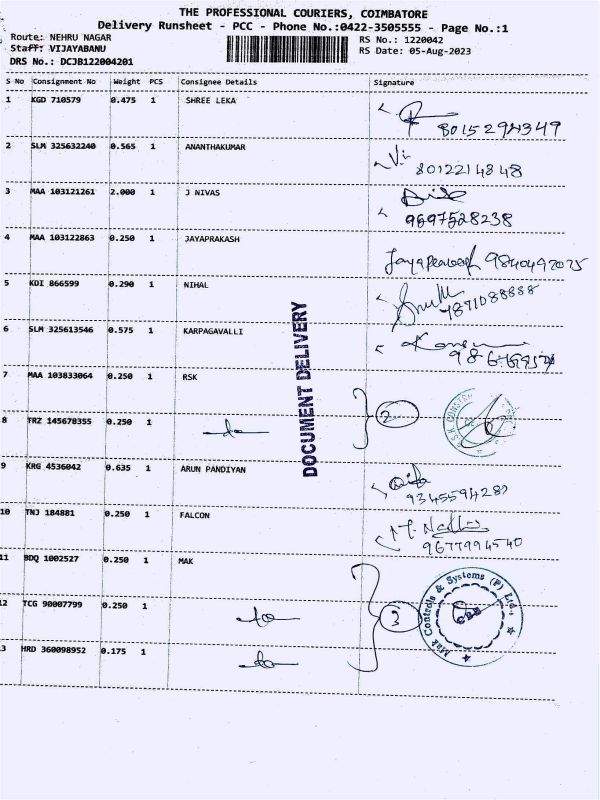 THE PROFESSIONAL COURIERS, COIMBATORE
Delivery Runsheet - PCC - Phone No.:0422-3505555 - Page No.:1
Route: NEHRU NAGAR
RS No.: 1220042
Staff: VIJAYABANU
RS Date: 05-Aug-2023
DRS No.: DCJB122004201
S No Consignment No Weight PCS Consignee Details Signature
1 KGD 710579 0.475 1 SHREE LEKA
8015294349
2 SLM 325632240 0.565 1 ANANTHAKUMAR
Vi 8012214848
3 MAA 103121261 2.000 1 J NIVAS
9597528238
4 MAA 103122863 0.250 1 JAYAPRAKASH
9840492025
5 KDI 866599 0.290 1 NIHAL
7871088888
6 SLM 325613546 0.575 1 KARPAGAVALLI
DOCUMENT DELIVERY
7 MAA 103833064 0.250 1 RSK
2
8 FRZ 145678355 0.250 1 do
9 KRG 4536042 0.635 1 ARUN PANDIYAN
10 TNJ 184881 0.250 1 FALCON
9677994540
11 BDQ 1002527 0.250 1 MAK
12 TCG 90007799 0.250 1 do
3
Mak Controls & Systems (P) Ltd.,
CBE
3 HRD 360098952 0.175 1 do